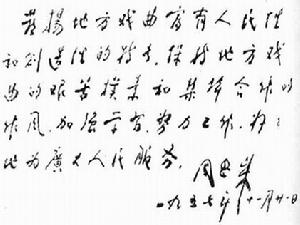 发扬地方戏曲富有人民性
和创造性的特点，保持地方戏
曲的艰苦朴素和集体合作的
作风，加强学习，努力工作，好好
地为广大人民服务。
周恩来
一九五七年十一月廿一日